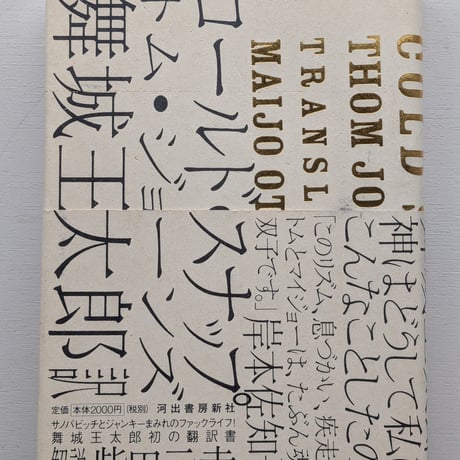 COLD
THOM JO
TRANSL
MAIJO OT
コールド・スナップ。
トム・ジョーンズ
舞城王太郎訳
神はどうして私
こんなことしたの
「このリズム、息づかい、疾走
トムとマイジョーは、たぶん魂
双子です。」岸本佐知
定価 本体2000円(税別) 河出書房新社
サノバビッチとジャンキーまみれのファックライフ!
舞城王太郎初の翻訳書